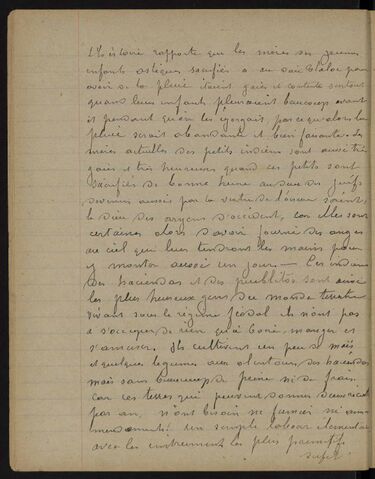 L'histoire rapporte que les mères des jeunes
enfants aztèques sacrifiés au dieu Tlaloc pour
avoir de la pluie étaient gaies et contente surtout
quand leurs enfants pleuraient beaucoup avant
et pendant qu'on les égorgeait, parce qu'alors la
pluie serait abondante et bien faisante. Les
mères actuelles des petits indiens sont aussi très
gaies et très heureuses quand ces petits sont
sacrifiés de bonne heure au dieu des Juifs
devenu aussi par la
le dieu des aryens d'occident, car elles sont
certaines alors d'avoir fourni des anges
au ciel qui leur tendront les mains pour
y monter aussi un jour — Ces indiens
des haciendas et des pueblitos sont aussi
les plus heureux gens du monde terrestre
vivant sous le régime féodal ils n'ont pas
à s'occuper de rien qu'à boire, manger et
s'amuser. Ils cultivent un peu de maïs
et quelques legumes aux alentours des haciendas
mais sans beaucoup de peine ni de frais.
Car ces terres qui peuvent donner deux récoltes
par an, n'ont besoin ni fumier ni
mendements. Un simple labour élémentaire
avec les instruments les plus primitifs
suffit